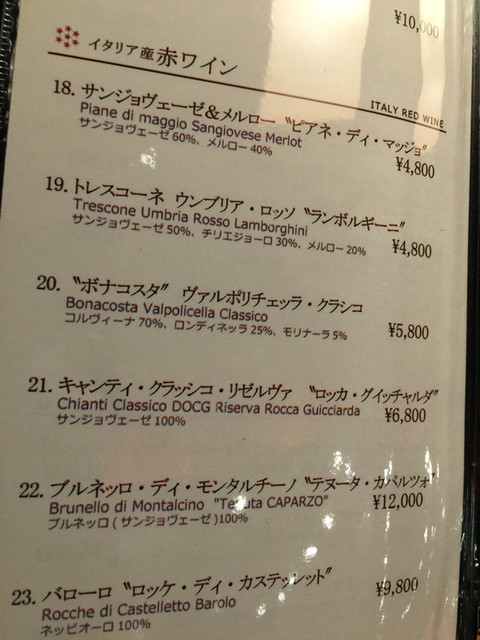 ¥10,000
イタリア産赤ワイン
ITALY RED WINE
18. サンジョヴェーゼ&メルロー 〝ピアネ・ディ・マッジョ〟
Piane di maggio Sangiovese Merlot ¥4,800
サンジョヴェーゼ 60%、メルロー 40%
19. トレスコーネ ウンブリア・ロッソ 〝ランボルギーニ〟
Trescone Umbria Rosso Lamborghini ¥4,800
サンジョヴェーゼ 50%、チリエジョーロ 30%、メルロー 20%
20. 〝ボナコスタ〟 ヴァルポリチェッラ・クラシコ
Bonacosta Valpolicella Classico ¥5,800
コルヴィーナ 70%、ロンディネッラ 25%、モリナーラ 5%
21. キャンティ・クラッシコ・リゼルヴァ 〝ロッカ・グイッチャルダ〟
Chianti Classico DOCG Riserva Rocca Guicciarda ¥6,800
サンジョヴェーゼ 100%
22. ブルネッロ・ディ・モンタルチーノ 〝テヌータ・カパルツォ〟
Brunello di Montalcino "Tenuta CAPARZO" ¥12,000
ブルネッロ ( サンジョヴェーゼ )100%
23. バローロ 〝ロッケ・ディ・カステッレット〟 ¥9,800
Rocche di Castelletto Barolo
ネッビオーロ 100%